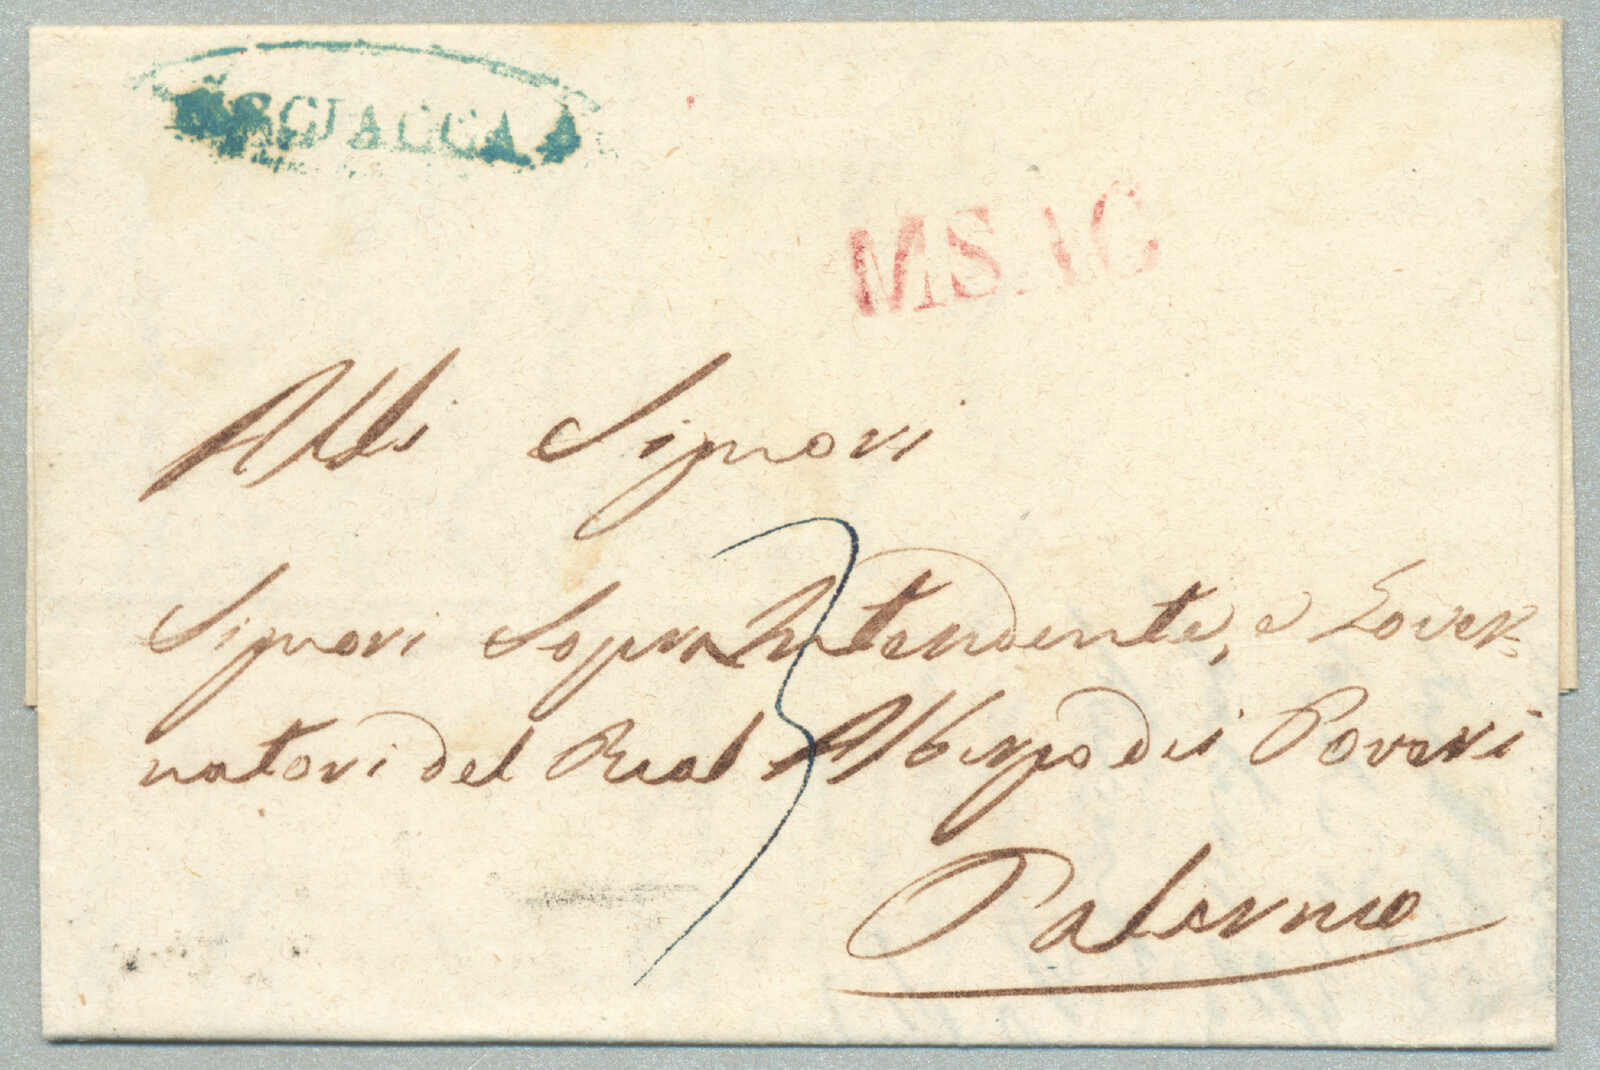 SCIACCA
MSAC
Alli Signori
3
Signori Soprantendente, e Gover=
natori del Real Albergo dei Poveri
Palermo